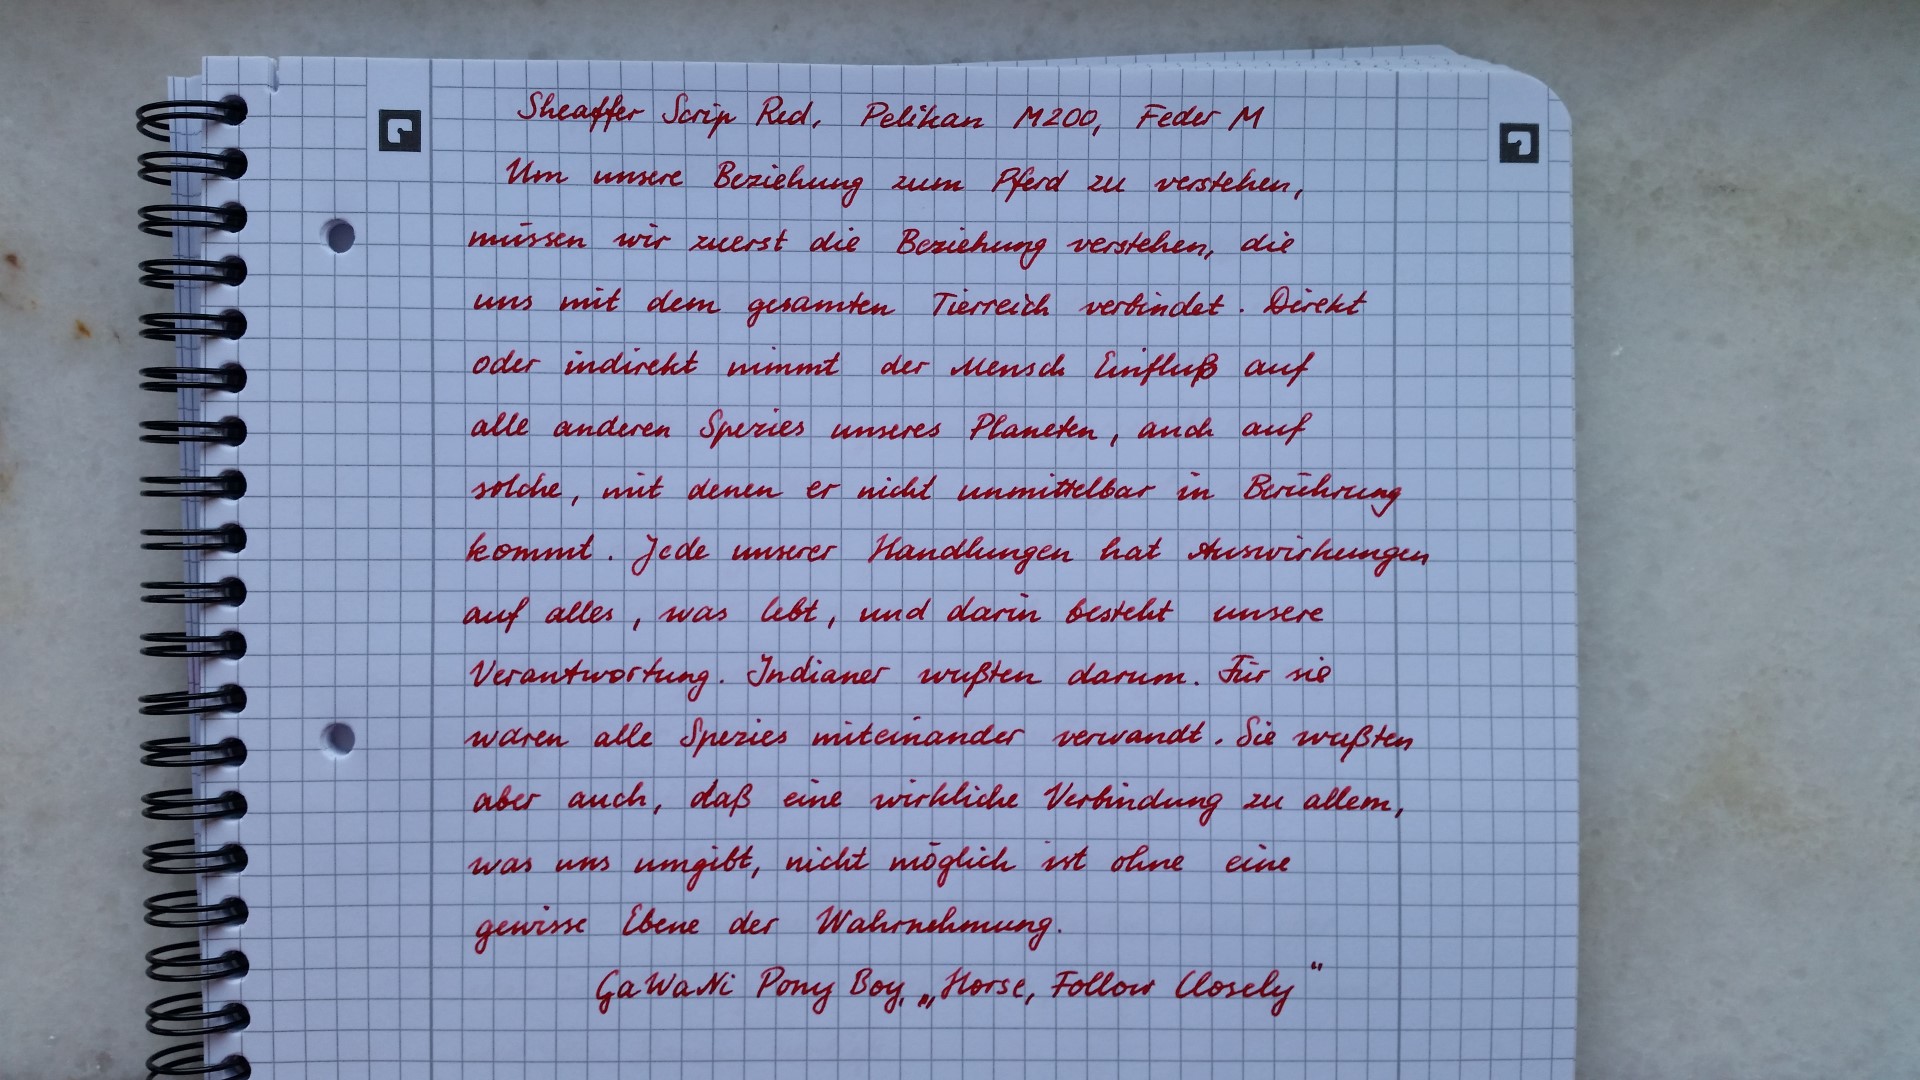 Sheaffer Scrip Red, Pelikan M200, Feder M
Um unsere Beziehung zum Pferd zu verstehen,
müssen wir zuerst die Beziehung verstehen, die
uns mit dem gesamten Tierreich verbindet. Direkt
oder indirekt nimmt der Mensch Einfluß auf
alle anderen Spezies unseres Planeten, auch auf
solche, mit denen er nicht unmittelbar in Berührung
kommt. Jede unserer Handlungen hat Auswirkungen
auf alles, was lebt, und darin besteht unsere
Verantwortung. Indianer wußten darum. Für sie
waren alle Spezies miteinander verwandt. Sie wußten
aber auch, daß eine wirkliche Verbindung zu allem,
was uns umgibt, nicht möglich ist ohne eine
gewisse Ebene der Wahrnehmung.
GaWaNi Pony Boy, „Horse, Follow Closely“